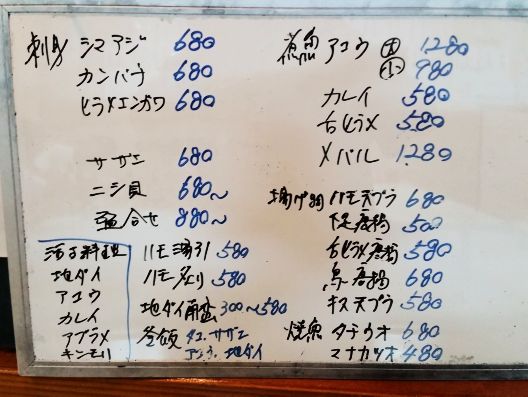 刺身 シマアジ 680
カンパチ 680
ヒラメエンガワ 680
サザエ 680
ニシ貝 680~
盛合せ 880~
活き料理
地ダイ
アコウ
カレイ
アブラメ
ハモ湯引 580
ハモ炙り 580
地ダイ 300~580
釜飯 タコ. サザエ
アコウ. 地ダイ
煮魚 アコウ 大 1280
小 980
カレイ 580
舌ヒラメ 580
メバル 1280
揚げ物 ハモ天プラ 680
唐揚 500
舌ヒラメ唐揚 580
魚唐揚 680
キス天プラ 580
焼魚 タチウオ 680
マナガツオ 480